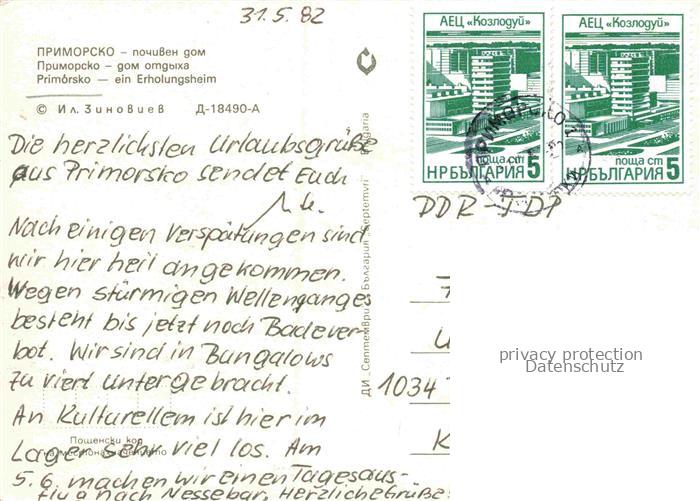 31.5.82
ПРИМОРСКО – почивен дом
Приморско – дом отдыха
Primórsko – ein Erholungsheim
© Ил. Зиновиев Д-18490-А
Die herzlichsten Urlaubsgrüße
aus Primorsko sendet Euch
Nach einigen Verspätungen sind
wir hier heil angekommen.
Wegen stürmigen Wellenganges
besteht bis jetzt noch Badever-
bot. Wir sind in Bungalows
zu viert untergebracht.
An Kulturellem ist hier im
Lager sehr viel los. Am
5.6. machen wir einen Tagesaus-
flug nach Nessebar. Herzliche Grüße
Пощенски код
на местоназначението
ДИ „Септември“ България „Septemvri“ Bulgaria
АЕЦ «Козлодуй»
поща ст
НРБЪЛГАРИЯ 5
АЕЦ «Козлодуй»
поща ст
НРБЪЛГАРИЯ 5
DDR-
1034
K
privacy protection
Datenschutz